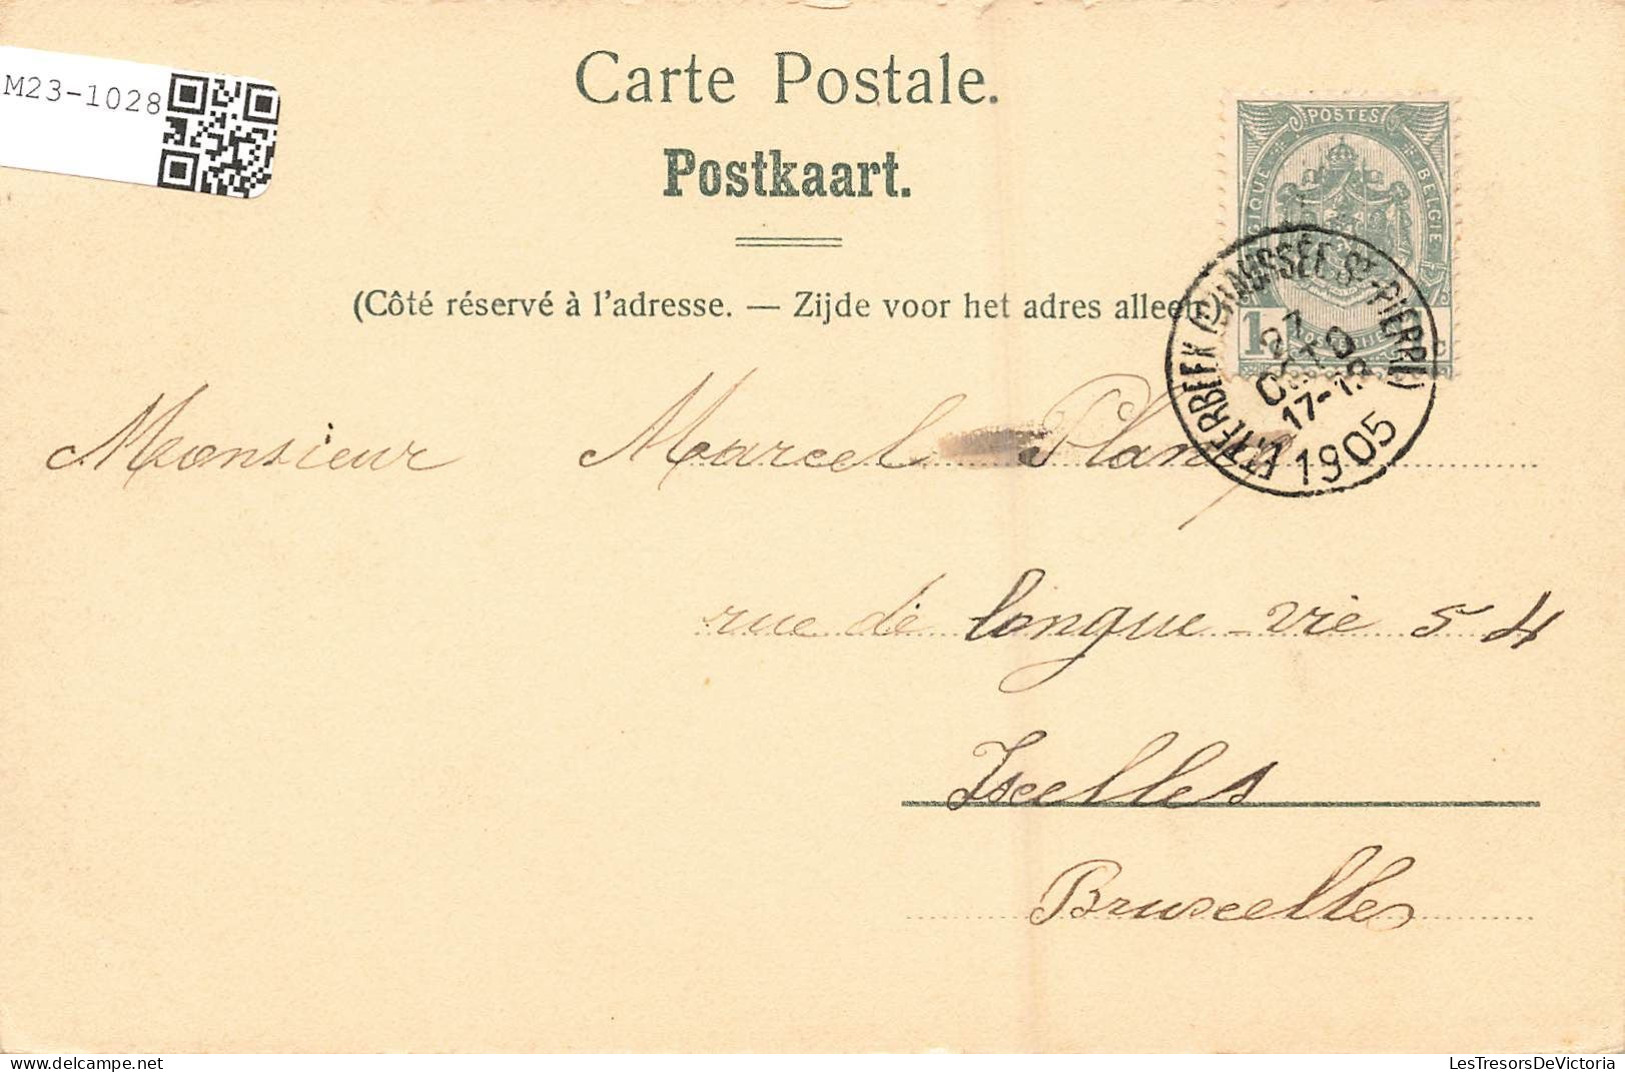 M23-1028
Carte Postale.
Postkaart.
(Côté réservé à l'adresse. — Zijde voor het adres alleen)
POSTES
BELGIQUE
BELGIE
1
ETTERBEEK (CHAUSSÉE ST-PIERRE)
OCT
17-18
1905
Monsieur Marcel
rue de longue vie 54
Ixelles
Bruxelles
LesTresorsDeVictoria